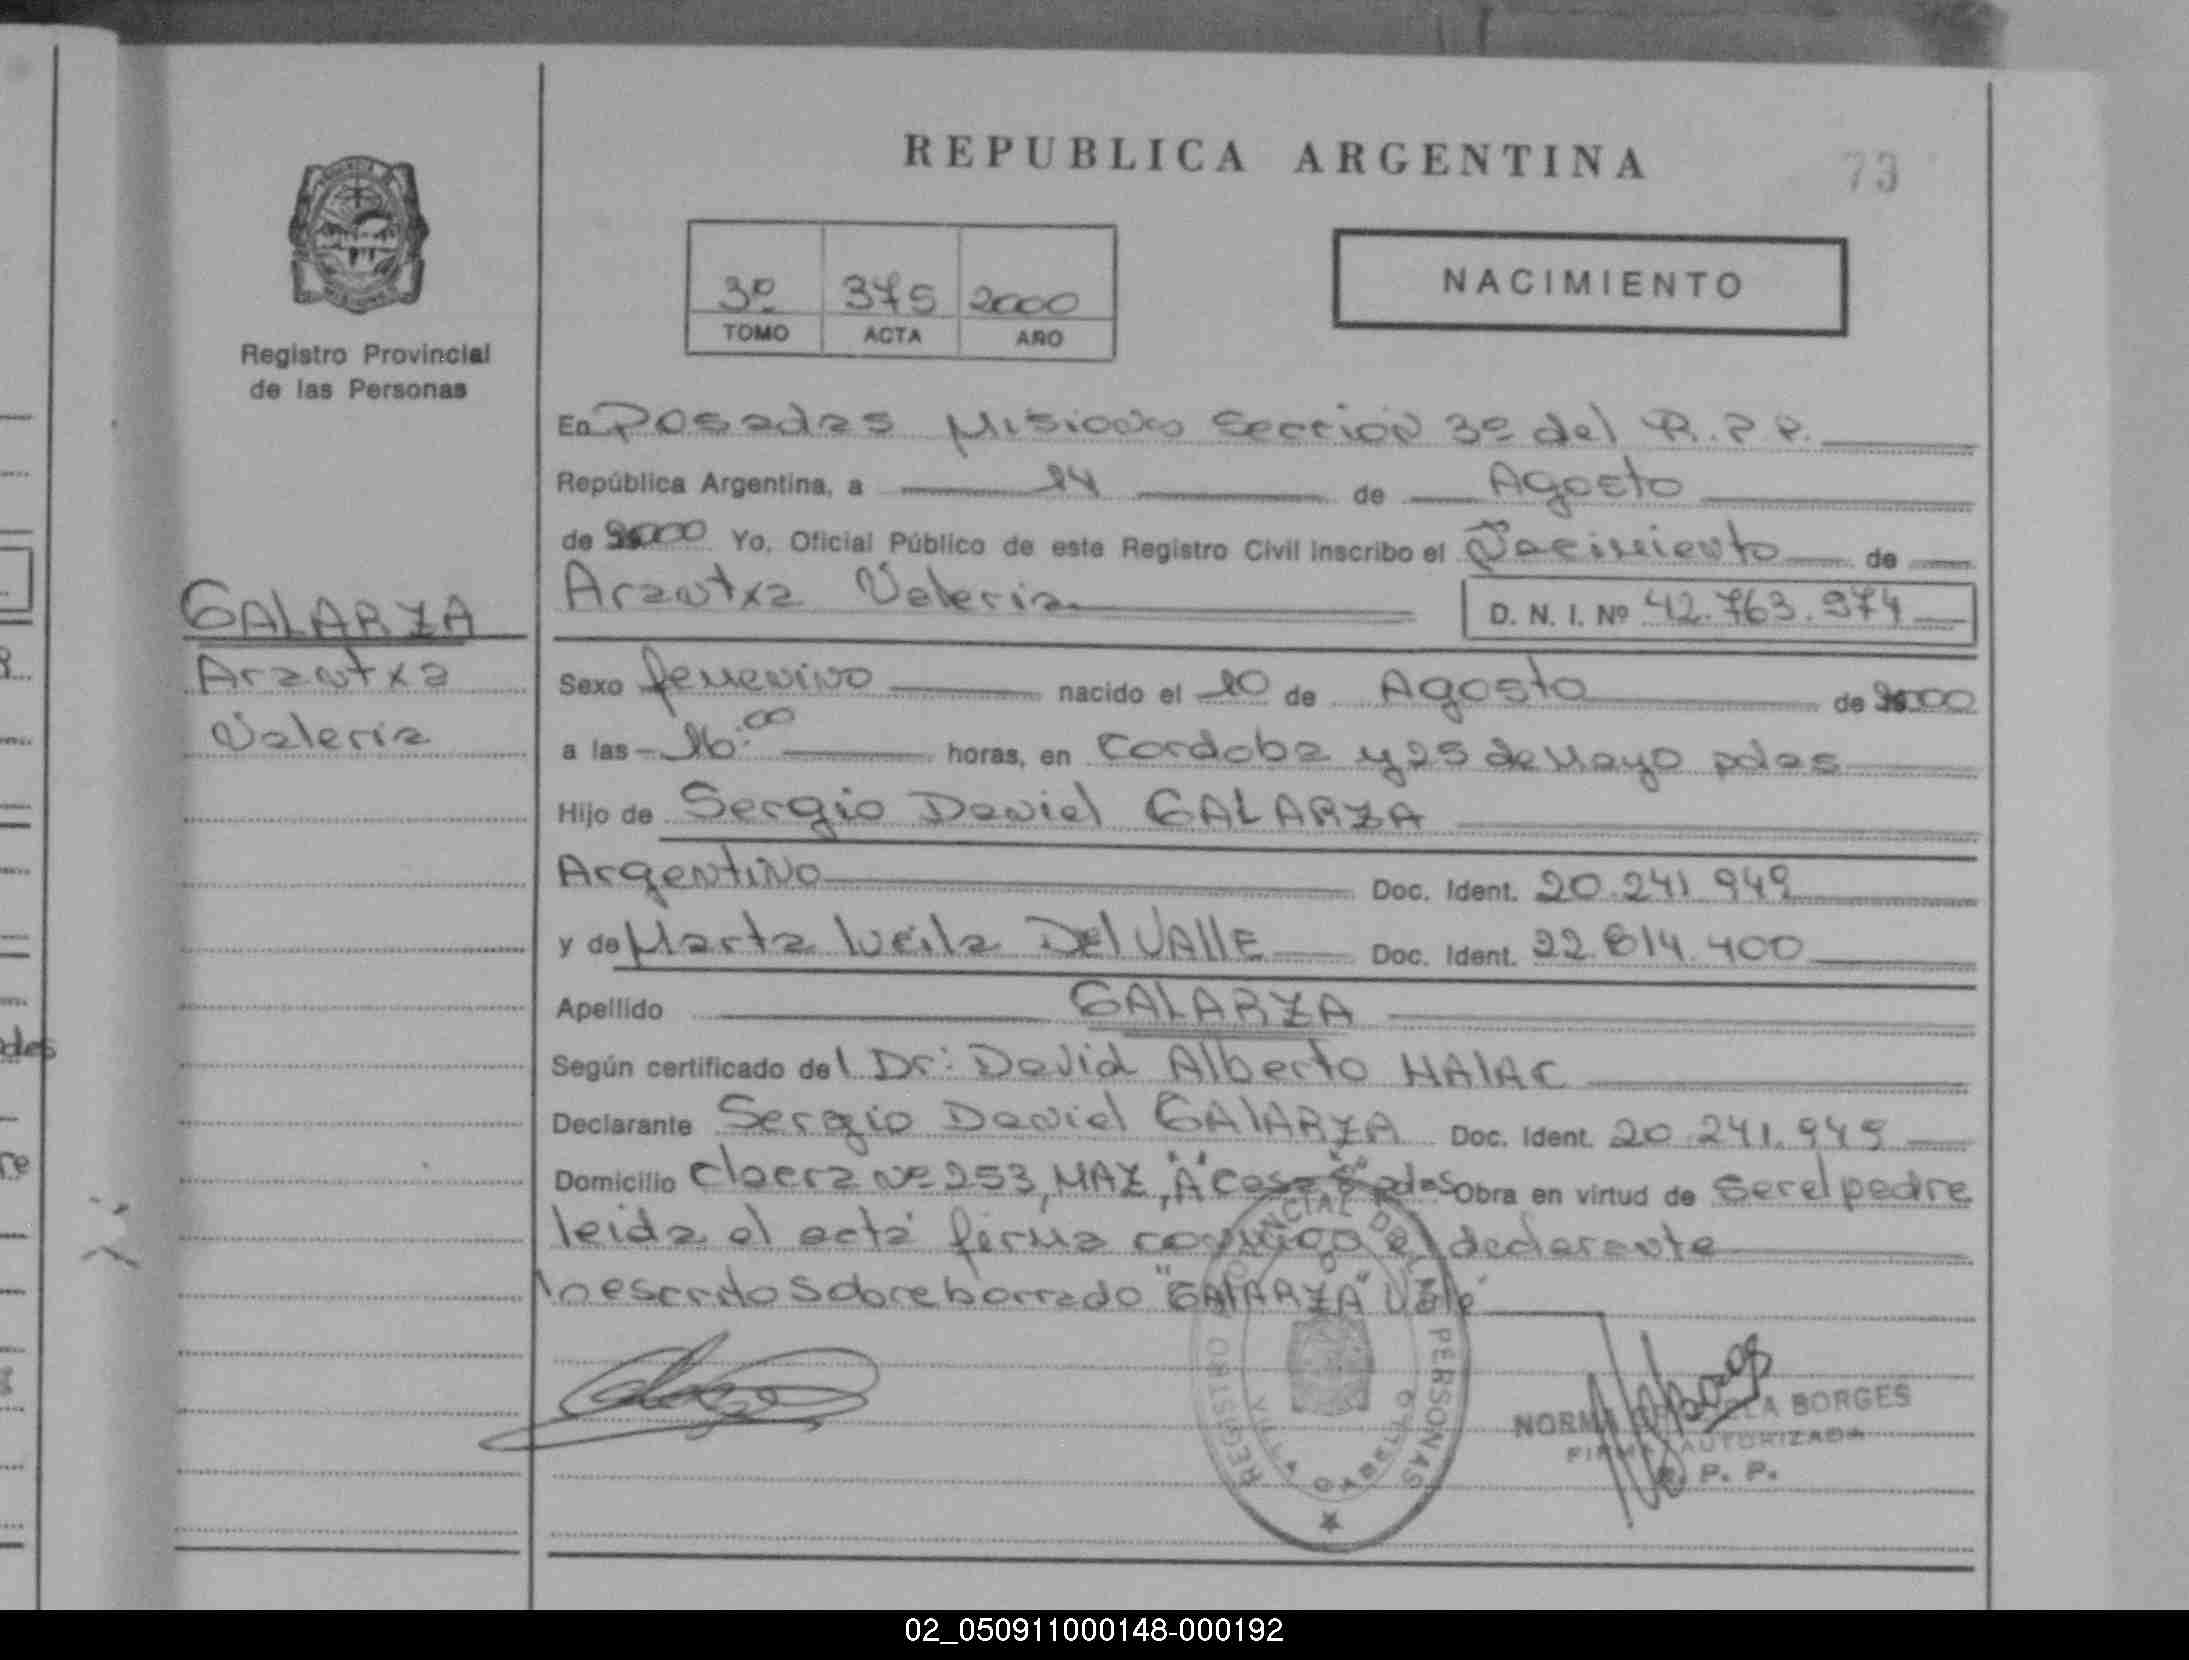 REPUBLICA ARGENTINA
73
3º 375 2000
TOMO ACTA AÑO
NACIMIENTO
Registro Provincial
de las Personas
GALARZA
Arantxa
Valeria
En Posadas Misiones Sección 3º del R.P.P.
República Argentina, a 14 de Agosto
de 2000 Yo, Oficial Público de este Registro Civil inscribo el Nacimiento de
Arantxa Valeria D. N. I. Nº 42.763.974
Sexo femenino nacido el 10 de Agosto de 2000
a las 16:00 horas, en Cordoba y 25 de Mayo pdas
Hijo de Sergio Daniel GALARZA
Argentino Doc. Ident. 20.241.949
y de Marta Doc. Ident. 22.814.400
Del VALLE
Apellido GALARZA
Según certificado del Dr: David Alberto HALAC
Declarante Sergio Daniel GALARZA Doc. Ident. 20.241.949
Domicilio Nº 253, MAZ, "A" Casa pdas Obra en virtud de Ser el padre
leida el acta firma conmigo el declarante
lo escrito sobre borrado "GALARZA" Vale
REGISTRO PROVINCIAL DE LAS PERSONAS
NORMA BORGES
FIRMA AUTORIZADA
R. P. P.
02_050911000148-000192